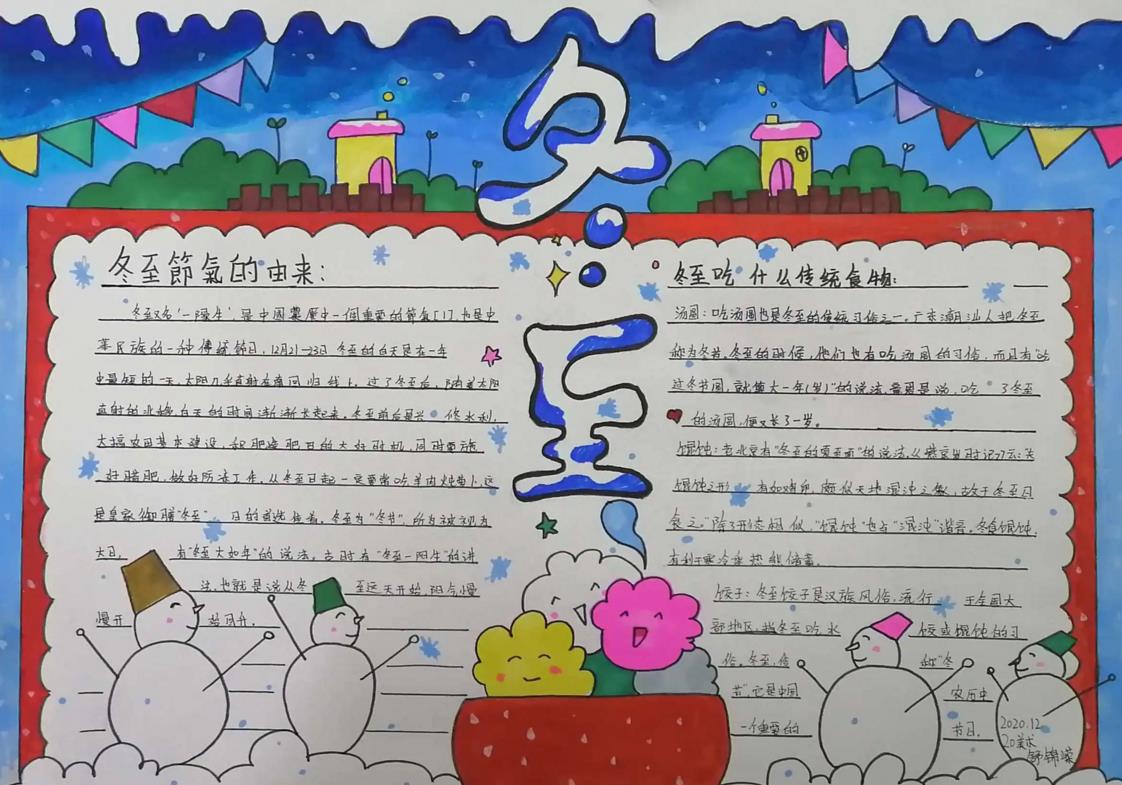 冬至
冬至節氣的由来:
冬至又名‘一陽生’是中國農曆中一個重要的節氣[1],也是中
華民族的一种傳統節日,12月21-23日冬至的白天是在一年
中最短的一天,太阳几乎直射在南回归线上,过了冬至后,随着太阳
直射的北移,白天的时间渐渐长起来,冬至前后是兴 修水利,
大搞农田基本建设,积肥造肥的大好时机,同时要施
好腊肥,做好防冻工作,从冬至日起一定要常吃羊肉炖萝卜,这
是皇家御膳“冬至” 日的首选
冬至为“冬节”,所为被视为
大日, 有“冬至大如年”的说法,古时有“冬至一阳生”的讲
法,也就是说从冬 至这天开始,阳气慢
慢开 始回升。
冬至吃什么传统食物:
汤圆:吃汤圆也是冬至的传统习俗之一。广东潮汕人把冬至
称为冬节。冬至的时候,他们也有吃汤圆的习俗,而且有“吃
过冬节圆,就算大一年(岁)”的说法,意思是说,吃 了冬至
的汤圆,便又长了一岁。
馄饨:老北京有“冬至的
面”的说法,《燕京岁时记》云:夫
馄饨之形 有如鸡卵,颇似天地混沌之象,故于冬至日
食之。”除了形态相似,“馄饨”也与“混沌”谐音。冬食馄饨,
有利于寒冷季热能储蓄。
饺子:冬至饺子是汉族风俗,流行 于全国大
部地区,指冬至吃水 饺或馄饨的习
俗。冬至,俗 称“冬
节”,它是中国 农历中
一个重要的 节日。
2020.12
20美术
舒锦